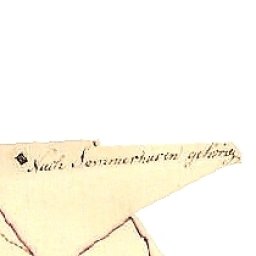 Nach Sommerhausen gehörig